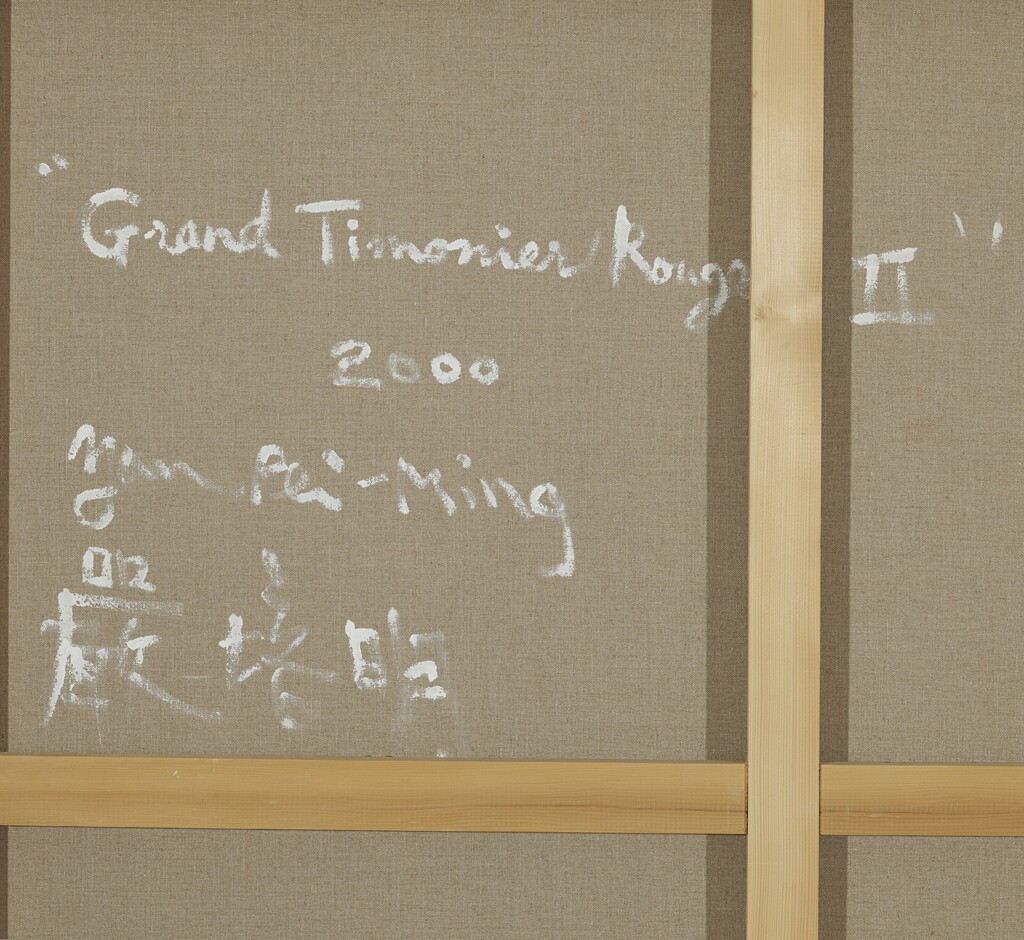 "Grand Timonier Rouge II"
2000
Yan Pei-Ming
嚴培明